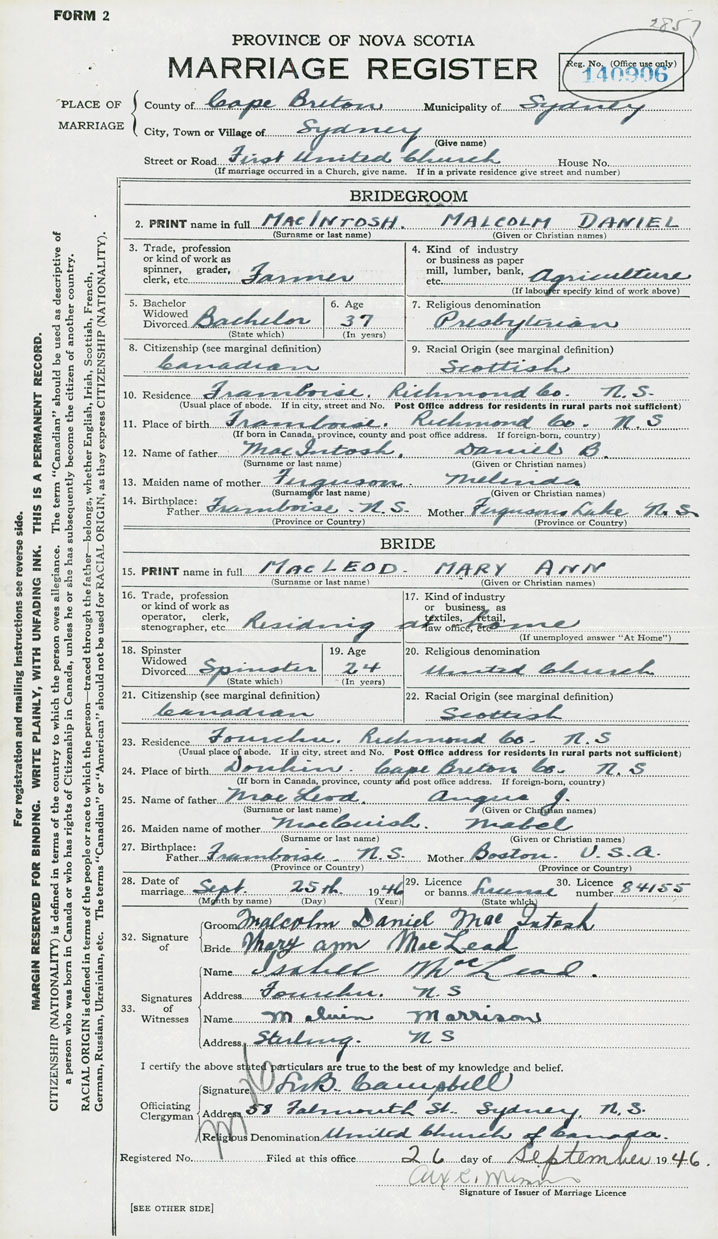 FORM 2
2857
PROVINCE OF NOVA SCOTIA
MARRIAGE REGISTER
Reg. No. (Office use only)
140906
PLACE OF MARRIAGE
County of Cape Breton Municipality of Sydney
City, Town or Village of Sydney
(Give name)
Street or Road First United Church House No.
(If marriage occurred in a Church, give name. If in a private residence give street and number)
BRIDEGROOM
2. PRINT name in full MACINTOSH. MALCOLM DANIEL
(Surname or last name) (Given or Christian names)
3. Trade, profession or kind of work as spinner, grader, clerk, etc. Farmer
4. Kind of industry or business as paper mill, lumber, bank, etc. Agriculture
(If labourer specify kind of work above)
5. Bachelor Widowed Divorced Bachelor
(State which)
6. Age 37
(In years)
7. Religious denomination
Presbyterian
8. Citizenship (see marginal definition)
Canadian
9. Racial Origin (see marginal definition)
Scottish
10. Residence Framboise. Richmond Co. N.S.
(Usual place of abode. If in city, street and No. Post Office address for residents in rural parts not sufficient)
11. Place of birth Framboise. Richmond Co. N S
(If born in Canada, province, county and post office address. If foreign-born, country)
12. Name of father MacIntosh. Daniel B.
(Surname or last name) (Given or Christian names)
13. Maiden name of mother Ferguson. Melinda
(Surname or last name) (Given or Christian names)
14. Birthplace: Father Framboise - N.S. Mother Fergusons Lake N.S.
(Province or Country) (Province or Country)
BRIDE
15. PRINT name in full MACLEOD- MARY ANN
(Surname or last name) (Given or Christian names)
16. Trade, profession or kind of work as operator, clerk, stenographer, etc. Residing at home
17. Kind of industry or business, as textiles, retail, law office, etc.
(If unemployed answer "At Home")
18. Spinster Widowed Divorced Spinster
(State which)
19. Age 24
(In years)
20. Religious denomination
United Church
21. Citizenship (see marginal definition)
Canadian
22. Racial Origin (see marginal definition)
Scottish
23. Residence Fourchu. Richmond Co. N.S
(Usual place of abode. If in city, street and No. Post Office address for residents in rural parts not sufficient)
24. Place of birth Donkin. Cape Breton Co. N S
(If born in Canada, province, county and post office address. If foreign-born, country)
25. Name of father MacLeod. Angus J.
(Surname or last name) (Given or Christian names)
26. Maiden name of mother MacCuish. Mabel
(Surname or last name) (Given or Christian names)
27. Birthplace: Father Framboise. N.S. Mother Boston. U.S.A.
(Province or Country) (Province or Country)
28. Date of marriage Sept. 25th 1946
(Month by name) (Day) (Year)
29. License or banns License
(State which)
30. Licence number 84155
32. Signature of
Groom Malcolm Daniel MacIntosh
Bride Mary Ann MacLeod
33. Signatures of Witnesses
Name Isabell MacLeod.
Address Fourchu. N.S
Name Melvin Morrison
Address Sterling. N.S
I certify the above stated particulars are true to the best of my knowledge and belief.
Officiating Clergyman
Signature Campbell
Address 58 Falmouth St. Sydney, N.S.
Religious Denomination United Church of Canada.
Registered No. Filed at this office 26 day of September 1946.
Signature of Issuer of Marriage Licence
[SEE OTHER SIDE]
For registration and mailing instructions see reverse side.
MARGIN RESERVED FOR BINDING. WRITE PLAINLY, WITH UNFADING INK. THIS IS A PERMANENT RECORD.
CITIZENSHIP (NATIONALITY) is defined in terms of the country to which the person owes allegiance. The term "Canadian" should be used as descriptive of
a person who was born in Canada or who has rights of Citizenship in Canada, unless he or she has subsequently become the citizen of another country.
RACIAL ORIGIN is defined in terms of the people or race to which the person—traced through the father—belongs, whether English, Irish, Scottish, French,
German, Russian, Ukrainian, etc. The terms "Canadian" or "American" should not be used for RACIAL ORIGIN, as they express CITIZENSHIP (NATIONALITY).